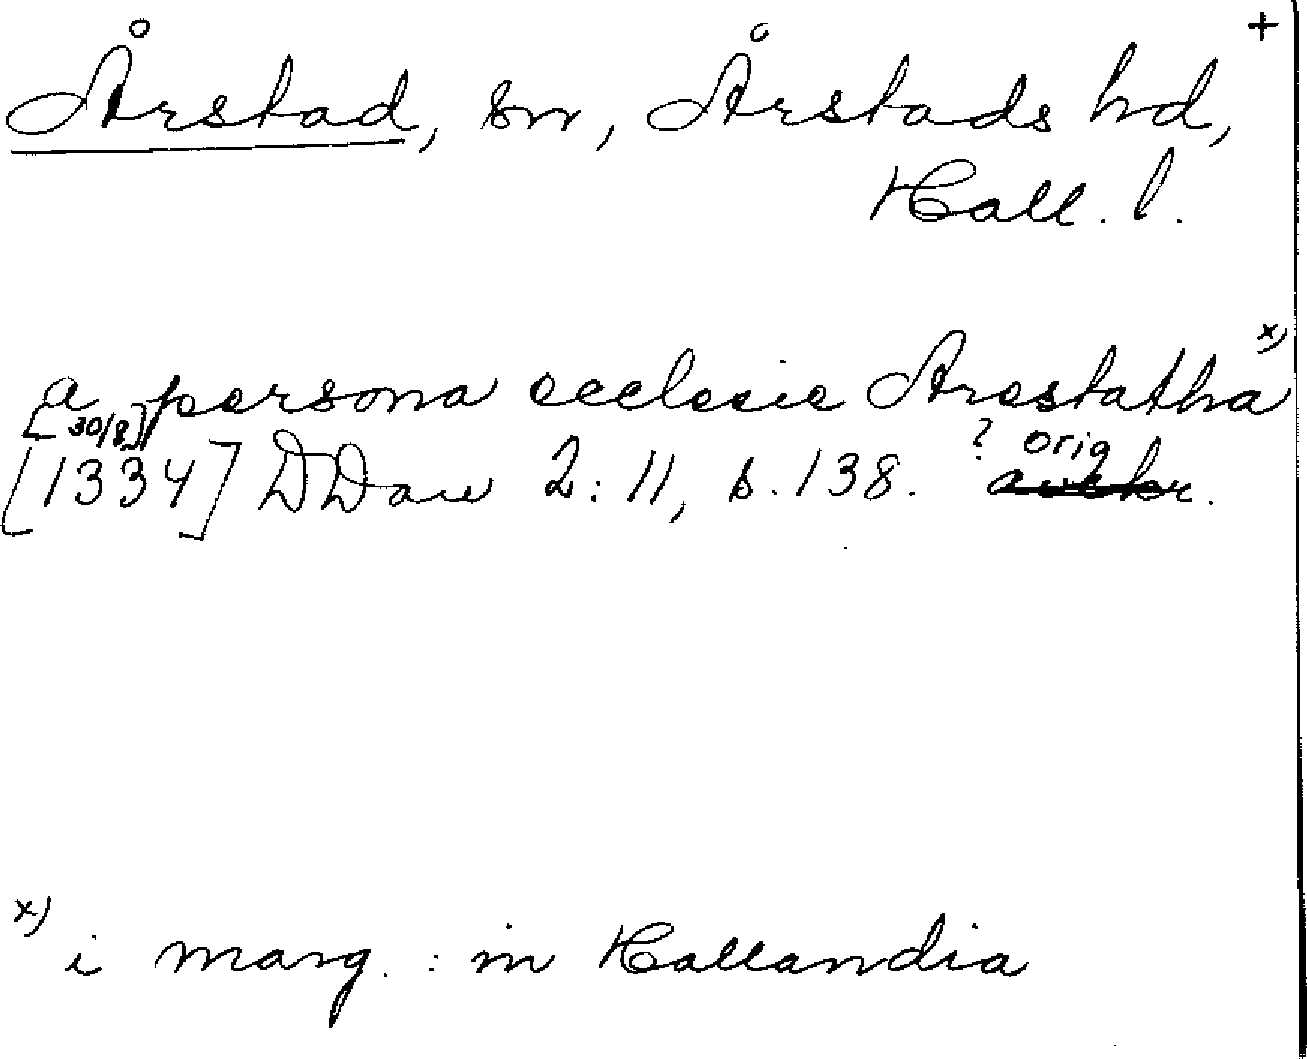 +
Årstad, sn, Årstads hd,
Hall. l.
a persona ecclesie Arestatha x)
[30/8]
[1334] DDan 2:11, s. 138. ? orig
avskr.
x) i marg. : in Hallandia